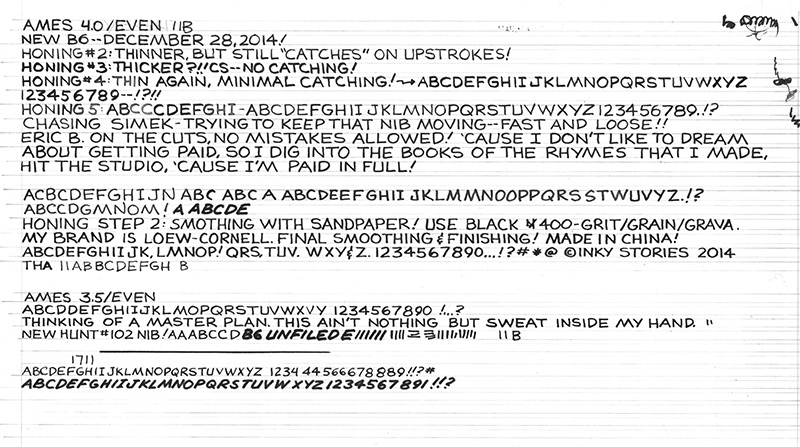 AMES 4.0/EVEN 11B
NEW B6--DECEMBER 28, 2014!
HONING #2: THINNER, BUT STILL "CATCHES" ON UPSTROKES!
HONING #3: THICKER?!!CS--NO CATCHING!
HONING #4: THIN AGAIN, MINIMAL CATCHING! → ABCDEFGHIIJKLMNOPQRSTUVWXYZ
123456789--!?!!
HONING 5: ABCCCDEFGHI-ABCDEFGHIIJKLMNOPQRSTUVWXYZ123456789.!?
CHASING SIMEK-TRYING TO KEEP THAT NIB MOVING--FAST AND LOOSE!!
ERIC B. ON THE CUTS, NO MISTAKES ALLOWED! 'CAUSE I DON'T LIKE TO DREAM
ABOUT GETTING PAID, SO I DIG INTO THE BOOKS OF THE RHYMES THAT I MADE,
HIT THE STUDIO, 'CAUSE I'M PAID IN FULL!
ACBCDEFGHIJN ABC ABC A ABCDEEFGHII JKLMMNOOPPQRSSTWUVYZ.!?
ABCCDGMNOM! A ABCDE
HONING STEP 2: SMOTHING WITH SANDPAPER! USE BLACK 400-GRIT/GRAIN/GRAVA.
MY BRAND IS LOEW-CORNELL. FINAL SMOOTHING & FINISHING! MADE IN CHINA!
ABCDEFGHIIJK, LMNOP! QRS, TUV. WXY & Z. 1234567890...!?#*@ ©INKY STORIES 2014
THA 11ABBCDEFGH B
AMES 3.5/EVEN
ABCDDEFGHIIJKLMOPQRSTUVWXVY 1234567890 !...?
THINKING OF A MASTER PLAN. THIS AIN'T NOTHING BUT SWEAT INSIDE MY HAND. "
NEW HUNT #102 NIB! AAABCCD B6 UNFILED E 11B
1711
ABCDEFGHIIJKLMNOPQRSTUVWXYZ 1234 44566678889!!?#
ABCDEFGHIIJKLMNOPQRSTUVWXYZ1234567891!!?